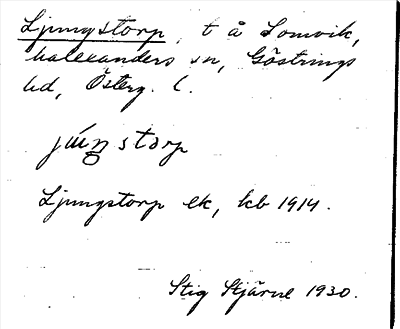 Ljungstorp, t å Lomvik,
Malexanders sn, Göstrings
hd, Österg. l.
júŋstorp
Ljungstorp ek, kb 1914.
Stig Stjärne 1930.